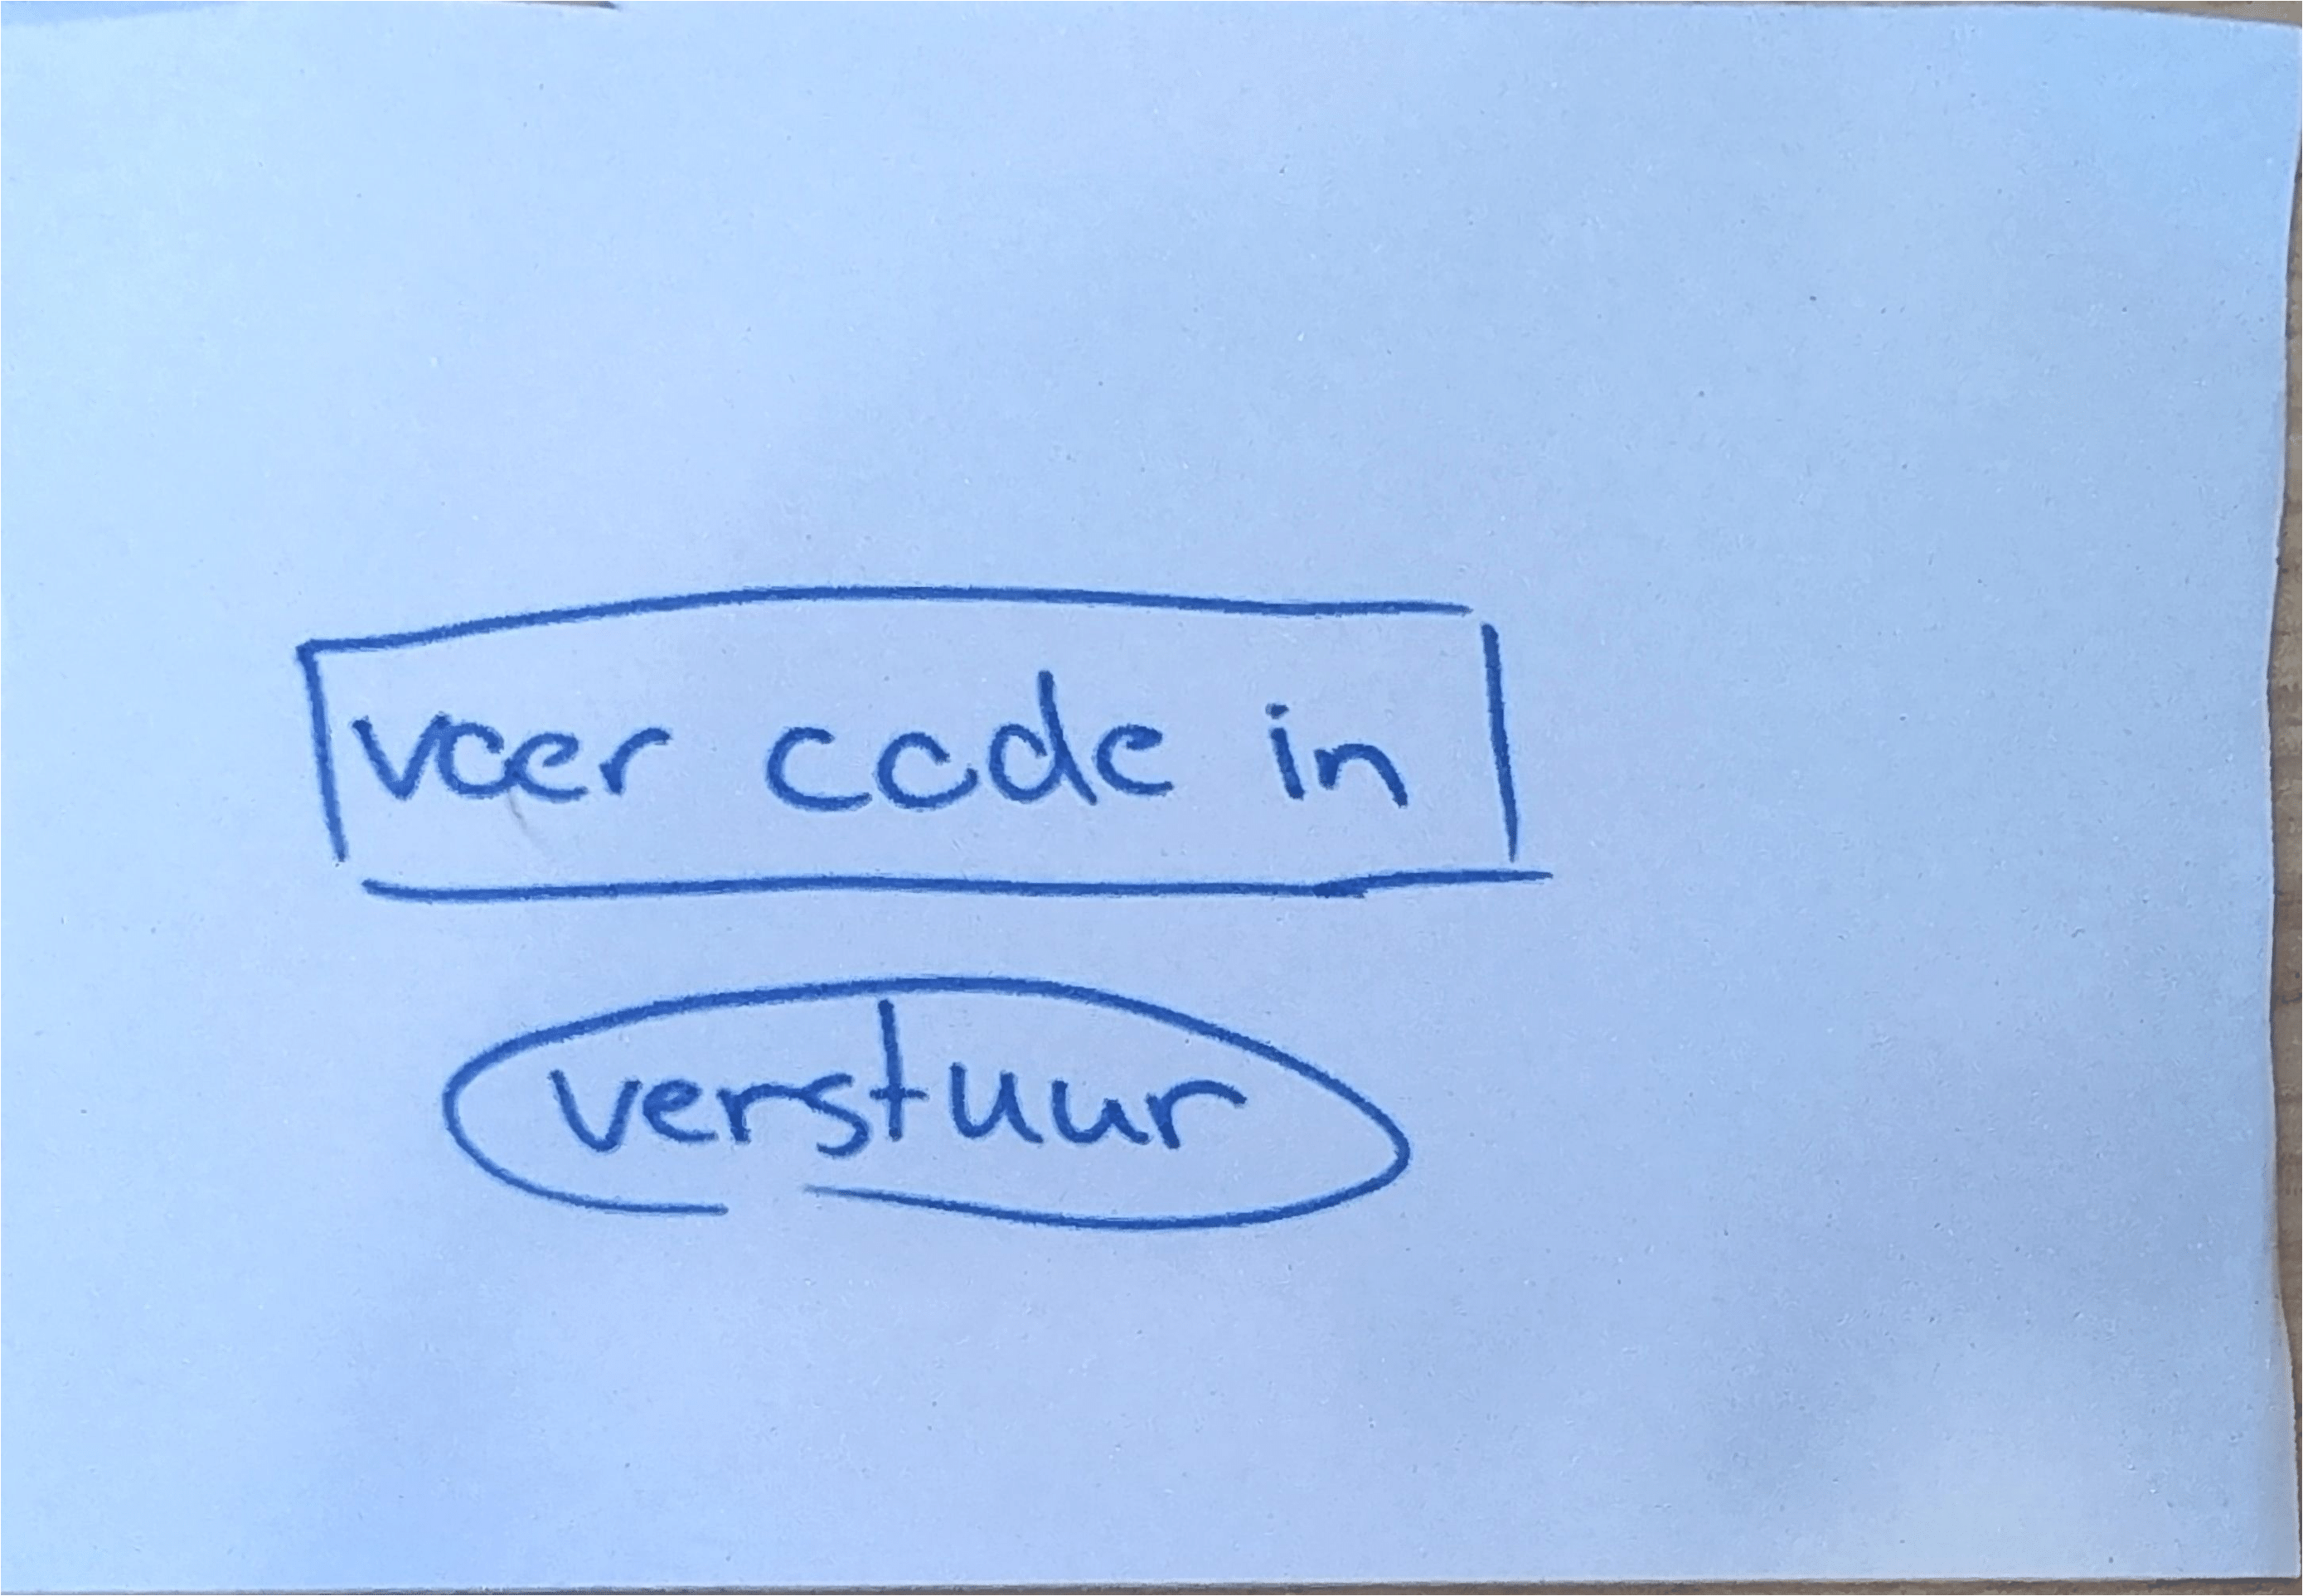 voer code in
verstuur